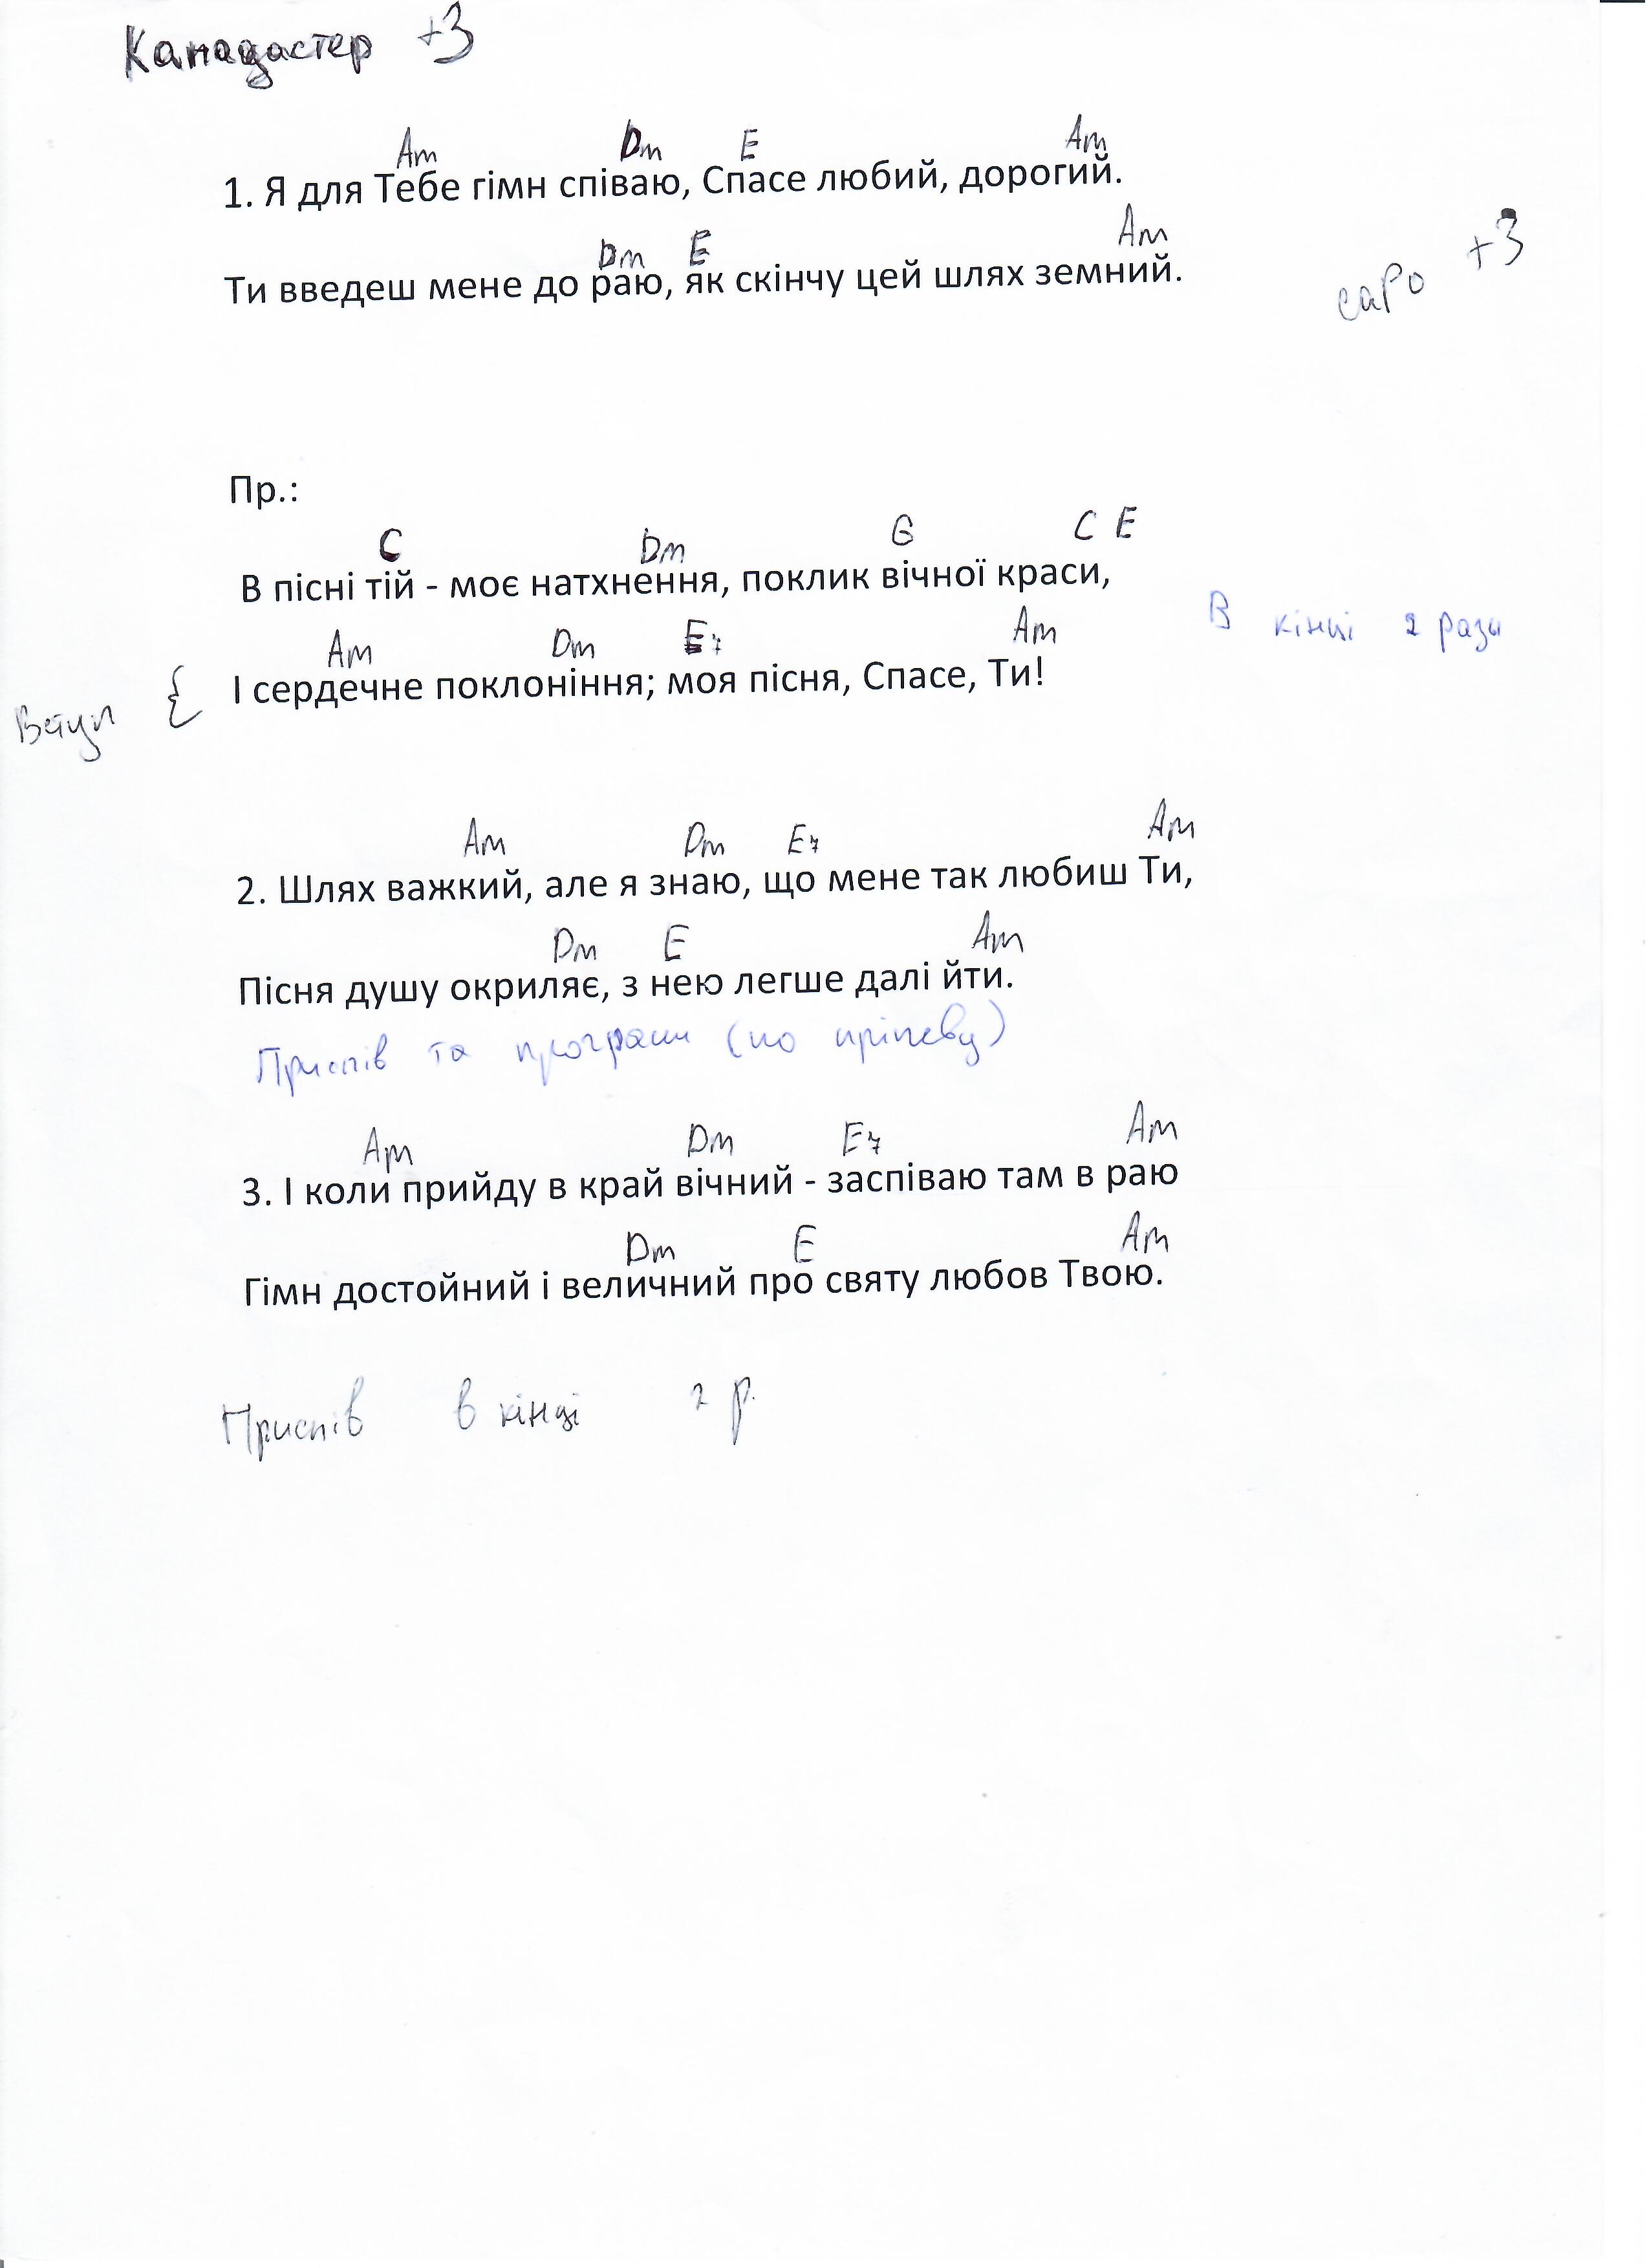 Канадастер +3
Am Dm E Am
1. Я для Тебе гімн співаю, Спасе любий, дорогий.
Dm E Am
Ти введеш мене до раю, як скінчу цей шлях земний.
саро +3
Пр.:
C Dm G C E
В пісні тій - моє натхнення, поклик вічної краси,
В кінці 2 рази
Am Dm E7 Am
Вступ { І сердечне поклоніння; моя пісня, Спасе, Ти!
Am Dm E7 Am
2. Шлях важкий, але я знаю, що мене так любиш Ти,
Dm E Am
Пісня душу окриляє, з нею легше далі йти.
Приспів та програш (по пріпеву)
Am Dm E7 Am
3. І коли прийду в край вічний - заспіваю там в раю
Dm E Am
Гімн достойний і величний про святу любов Твою.
Приспів в кінці 2 р.